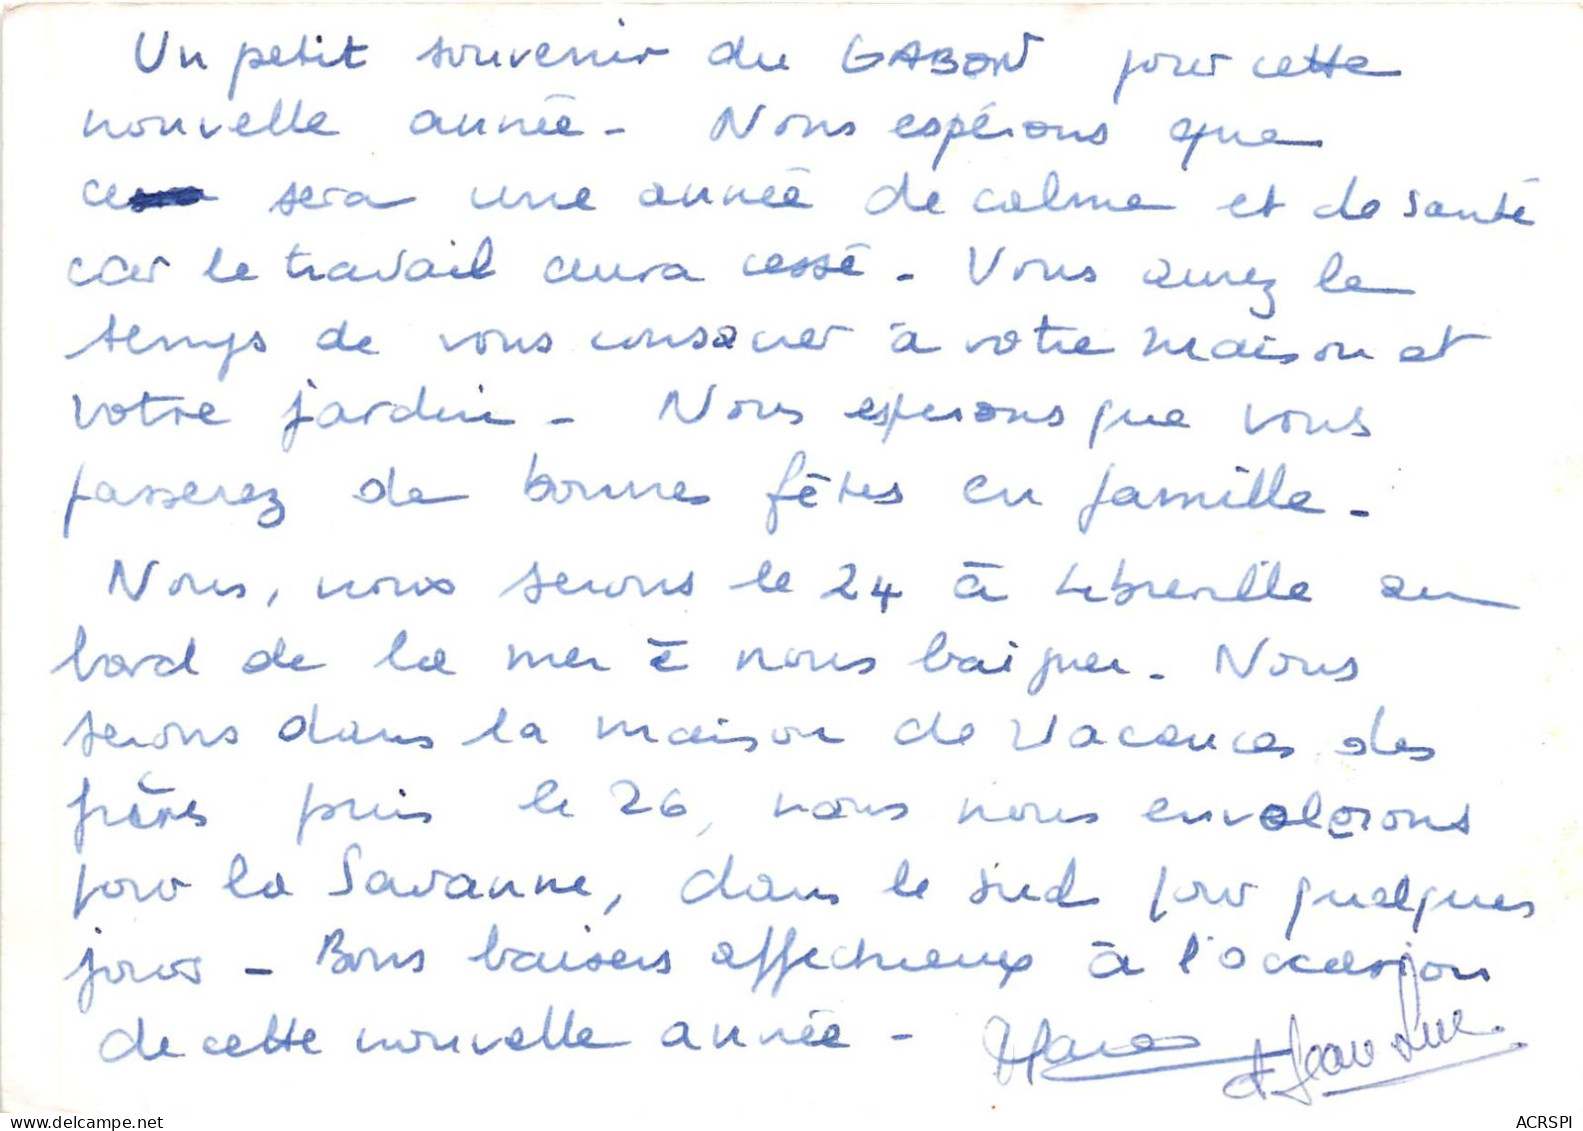 Un petit souvenir du GABON pour cette
nouvelle année - Nous espérons que
ce sera une année de calme et de santé
car le travail aura cessé - Vous aurez le
temps de vous consacrer à votre maison et
votre jardin - Nous esperons que vous
passerez de bonnes fêtes en famille -
Nous, nous serons le 24 à Libreville au
bord de la mer à nous baigner - Nous
serons dans la maison de Vacances des
frères puis le 26, nous nous envolerons
pour la Savanne, dans le sud pour quelques
jours - Bons baisers affectueux à l'occasion
de cette nouvelle année -
et Jean Luc.
ACRSPI